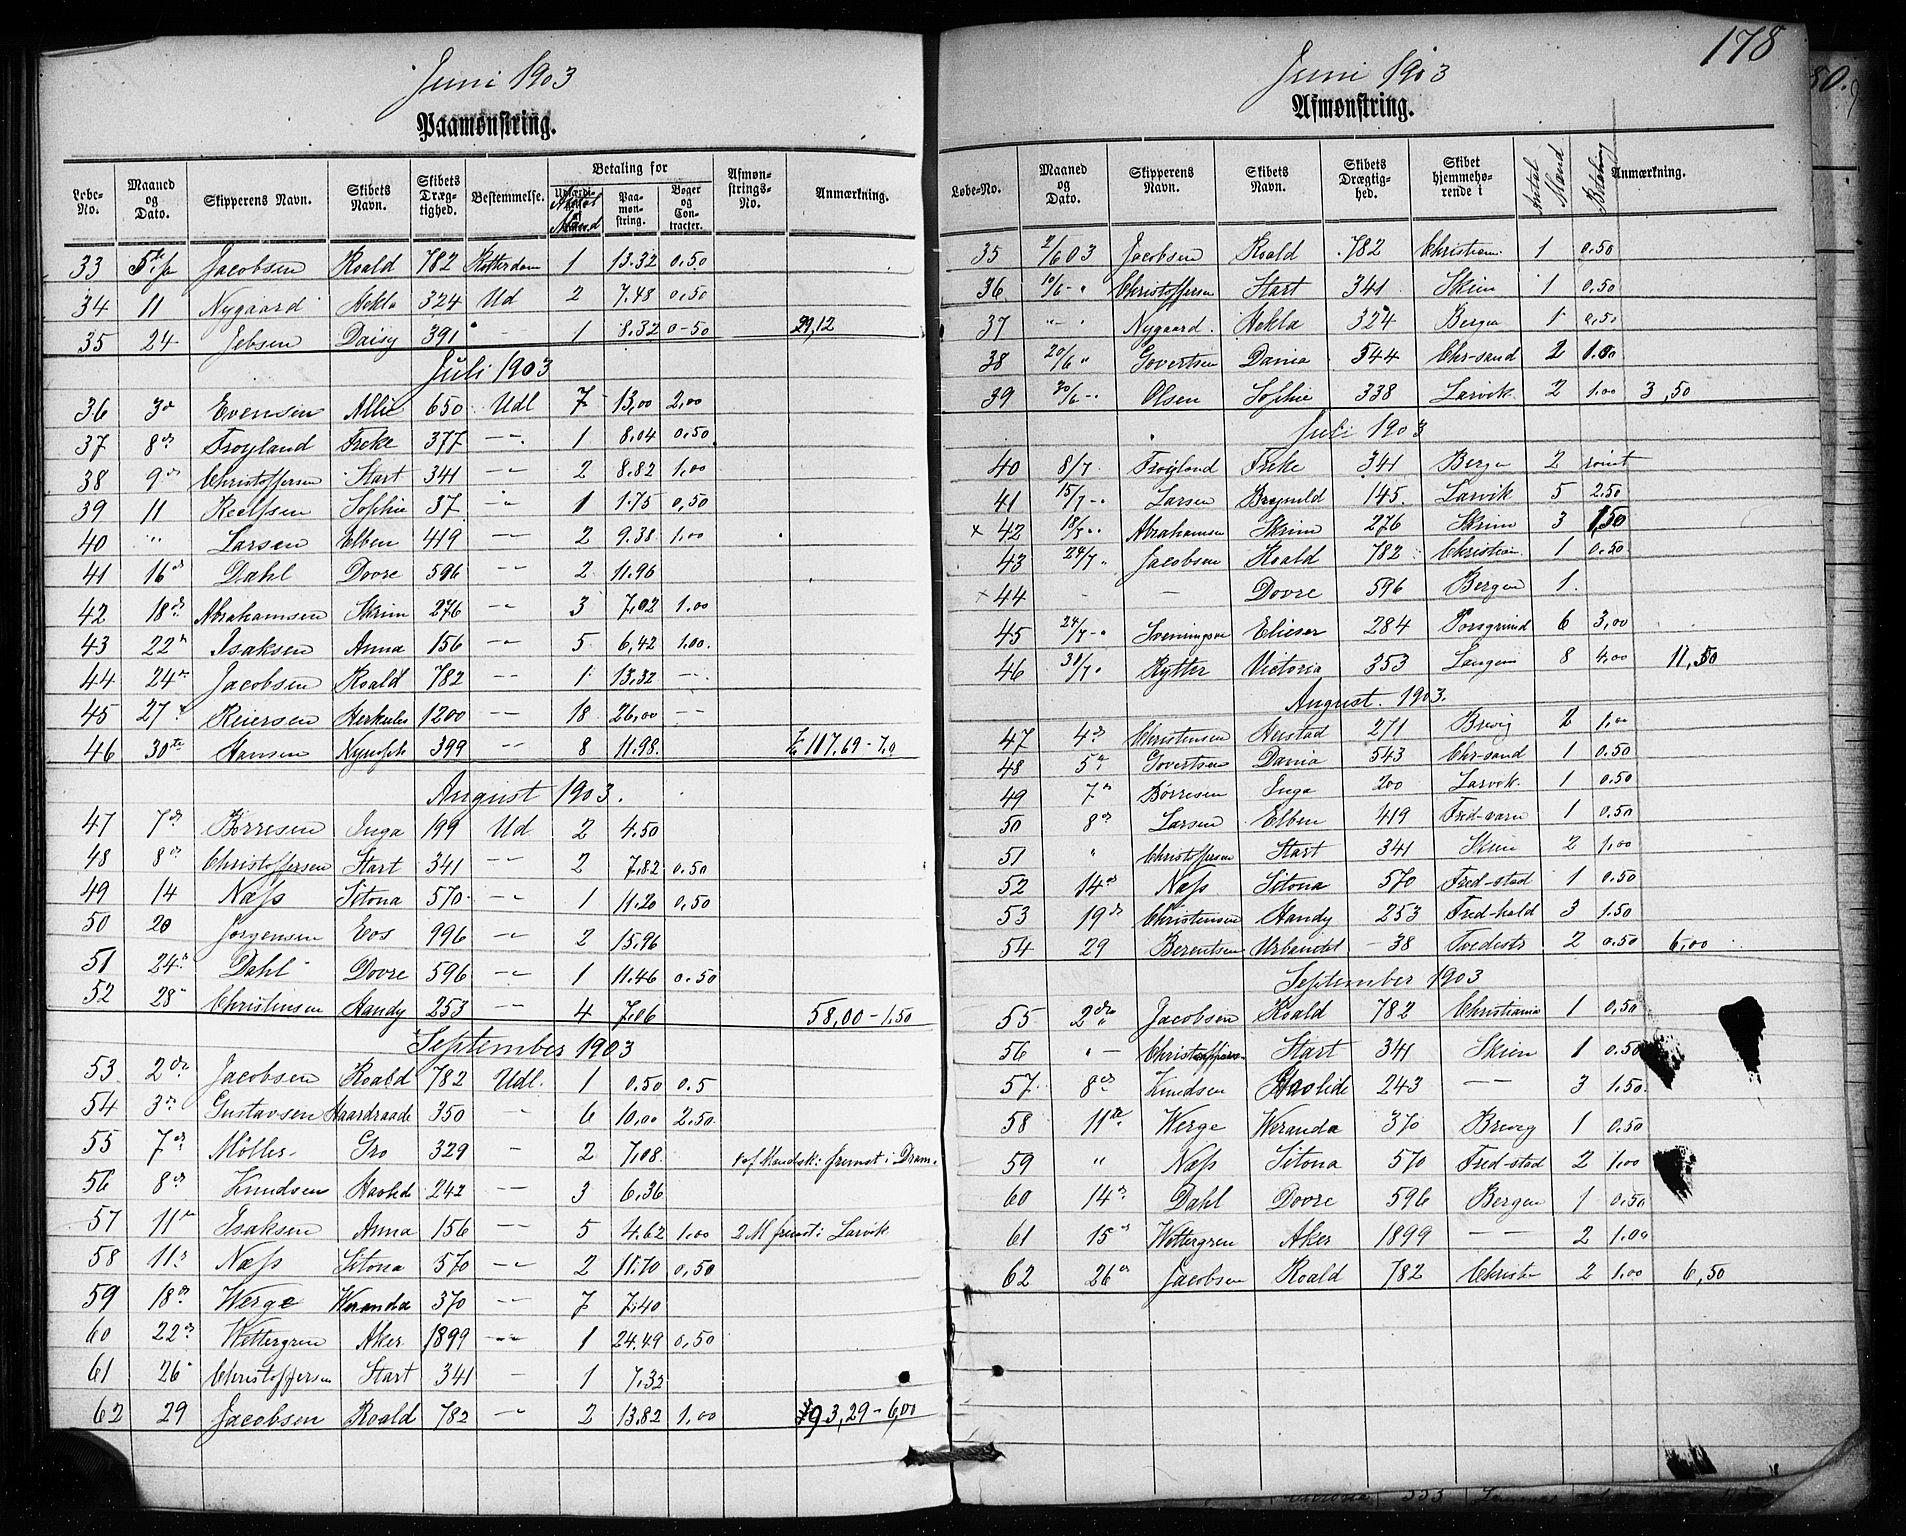 Juni 1903
Paamønstring.
Løbe-No. | Maaned og Dato. | Skipperens Navn. | Skibets Navn. | Skibets Dræg-tighed. | Bestemmelse. | Betaling for | Antal Mand | Paa-mon-string. | Bøger og Con-tracter. | Afmøn-strings-No. | Anmærkning.
33 | 5te | Jacobsen | Roald | 782 | Rotterdam | 1 | 13.32 | 0.50
34 | 11 | Nygaard | Hekla | 324 | Ud | 2 | 7.48 | 0.50
35 | 24 | Jebsen | Daisy | 391 | " | 1 | 8.32 | 0-50 | 29,12
Juli 1903
36 | 3d | Evensen | Allie | 650 | Udl | 7 | 13,00 | 2,00
37 | 8de | Frøyland | Freke | 377 | -"- | 1 | 8.04 | 0.50
38 | 9de | Christoffersen | Start | 341 | -"- | 2 | 8.82 | 1.00
39 | 11 | Roelfsen | Sophie | 37 | -"- | 1 | 1.75 | 0,50
40 | " | Larsen | Elben | 419 | -"- | 2 | 9.38 | 1.00
41 | 16de | Dahl | Dovre | 596 | -"- | 2 | 11.96
42 | 18de | Abrahamsen | Skrim | 276 | -"- | 3 | 7,02 | 1.00
43 | 22n | Isaksen | Anna | 156 | -"- | 5 | 6,42 | 1.00
44 | 24de | Jacobsen | Roald | 782 | -"- | 1 | 13,32 | - -
45 | 27 | Reiersen | Herkules | 1200 | -"- | 18 | 26,00 | - -
46 | 30te | Hansen | Nymfolk | 399 | -"- | 8 | 11.98 | 117,69-7,0
August 1903.
47 | 7de | Børresen | Inga | 199 | Ud | 2 | 4.50
48 | 8de | Christoffersen | Start | 341 | -"- | 2 | 7,82 | 0.50
49 | 14 | Næss | Sitona | 570 | -"- | 1 | 11.20 | 0,50
50 | 20 | Jørgensen | Eos | 996 | -"- | 2 | 15,96
51 | 24de | Dahl | Dovre | 596 | -"- | 1 | 11.46 | 0.50
52 | 28 | Christensen | Handy | 253 | -"- | 4 | 7,06 | 58,00-1,50
September 1903
53 | 2den | Jacobsen | Roald | 782 | Udl. | 1 | 0.50 | 0.5
54 | 3de | Gustavsen | Haardraade | 350 | " | 6 | 10,00 | 2,50
55 | 7de | Møller | Gro | 329 | - | 2 | 7,08 | 1 af Mandsk: fremst i Dram.
56 | 8de | Knudsen | Havlide | 242 | - | 3 | 6,36
57 | 11te | Isaksen | Anna | 156 | -"- | 5 | 4.62 | 1.00 | 2 M fremst i Larvik
58 | 11s | Næss | Sitona | 570 | -"- | 2 | 11.70 | 0,50
59 | 18de | Werge | Weranda | 370 | -"- | 7 | 7,40
60 | 22de | Wettergren | Aker | 1899 | -"- | 1 | 24.49 | 0,50
61 | 26 | Christoffersen | Start | 341 | - | 1 | 7,32
62 | 29 | Jacobsen | Roald | 782 | -"- | 2 | 13,82 | 1,00 | 93,29-6,00
178
Juni 1903
Afmønstring.
Løbe-No. | Maaned og Dato. | Skipperens Navn. | Skibets Navn. | Skibets Drægtig-hed. | Skibet hjemmehø-rende i | Antal Mand | Betaling | Anmærkning.
35 | 2/6 03 | Jacobsen | Roald | 782 | Christiani | 1 | 0.50
36 | 10/6 - " | Christoffersen | Start | 341 | Skien | 1 | 0.50
37 | "- " | Nygaard | Hekla | 324 | Bergen | 1 | 0,50
38 | 20/6 " | Govertsen | Dania | 544 | Chr-sand | 2 | 1.00
39 | 30/6 - " | Olsen | Sophie | 338 | Larvik | 2 | 1.00 | 3,50
Juli 1903
40 | 8/7 | Frøyland | Freke | 341 | Bergen | 2
41 | 15/7 - " | Larsen | Bragnild | 145 | Larvik | 5 | 2.50
x 42 | 18/7 " | Abrahamsen | Skrim | 276 | Skrim | 3 | 1,50
43 | 24/7 " | Jacobsen | Roald | 782 | Christian. | 1 | 0.50
x 44 | - | - | Dovre | 596 | Bergen | 1.
45 | 24/7 - " | Sveningsen | Elieser | 284 | Porsgrund | 6 | 3,00
46 | 31/7 " | Rytter | Victoria | 353 | Langesu | 8 | 4,00 | 11,50
August. 1903.
47 | 4de | Christensen | Hustad | 271 | Brevig | 2 | 1.00
48 | 5te | Govertsen | Dania | 543 | Chr-sand | 1 | 0.50
49 | 7de | Børresen | Inga | 200 | Larvik | 1 | 0.50
50 | 8de | Larsen | Elben | 419 | Fred-varn | 1 | 0.50
51 | " | Christoffersen | Start | 341 | Skien | 2 | 1,00
52 | 14de | Næss | Sitona | 570 | Fred-stad | 1 | 0.50
53 | 19de | Christensen | Handy | 253 | Fred-hald | 3 | 1.50
54 | 29 | Berentsen | Urbanist | 38 | Tvedestr | 2 | 0.50 | 6,00
September 1903
55 | 2den | Jacobsen | Roald | 782 | Christiania | 1 | 0,50
56 | " - | Christoffersen | Start | 341 | Skien | 1 | 0.50
57 | 8de | Knudsen | Havlide | 243 | - - | 3 | 1.50
58 | 11te | Werge | Weranda | 370 | Brevig | 1 | 0.50
59 | " | Næss | Sitona | 570 | Fred-stad | 2 | 1,00
60 | 14de | Dahl | Dovre | 596 | Bergen | 1 | 0.50
61 | 15de | Wettergren | Aker | 1899 | - - | 2 | 1.00
62 | 26de | Jacobsen | Roald | 782 | Christi | 2 | 1,00 | 6,50